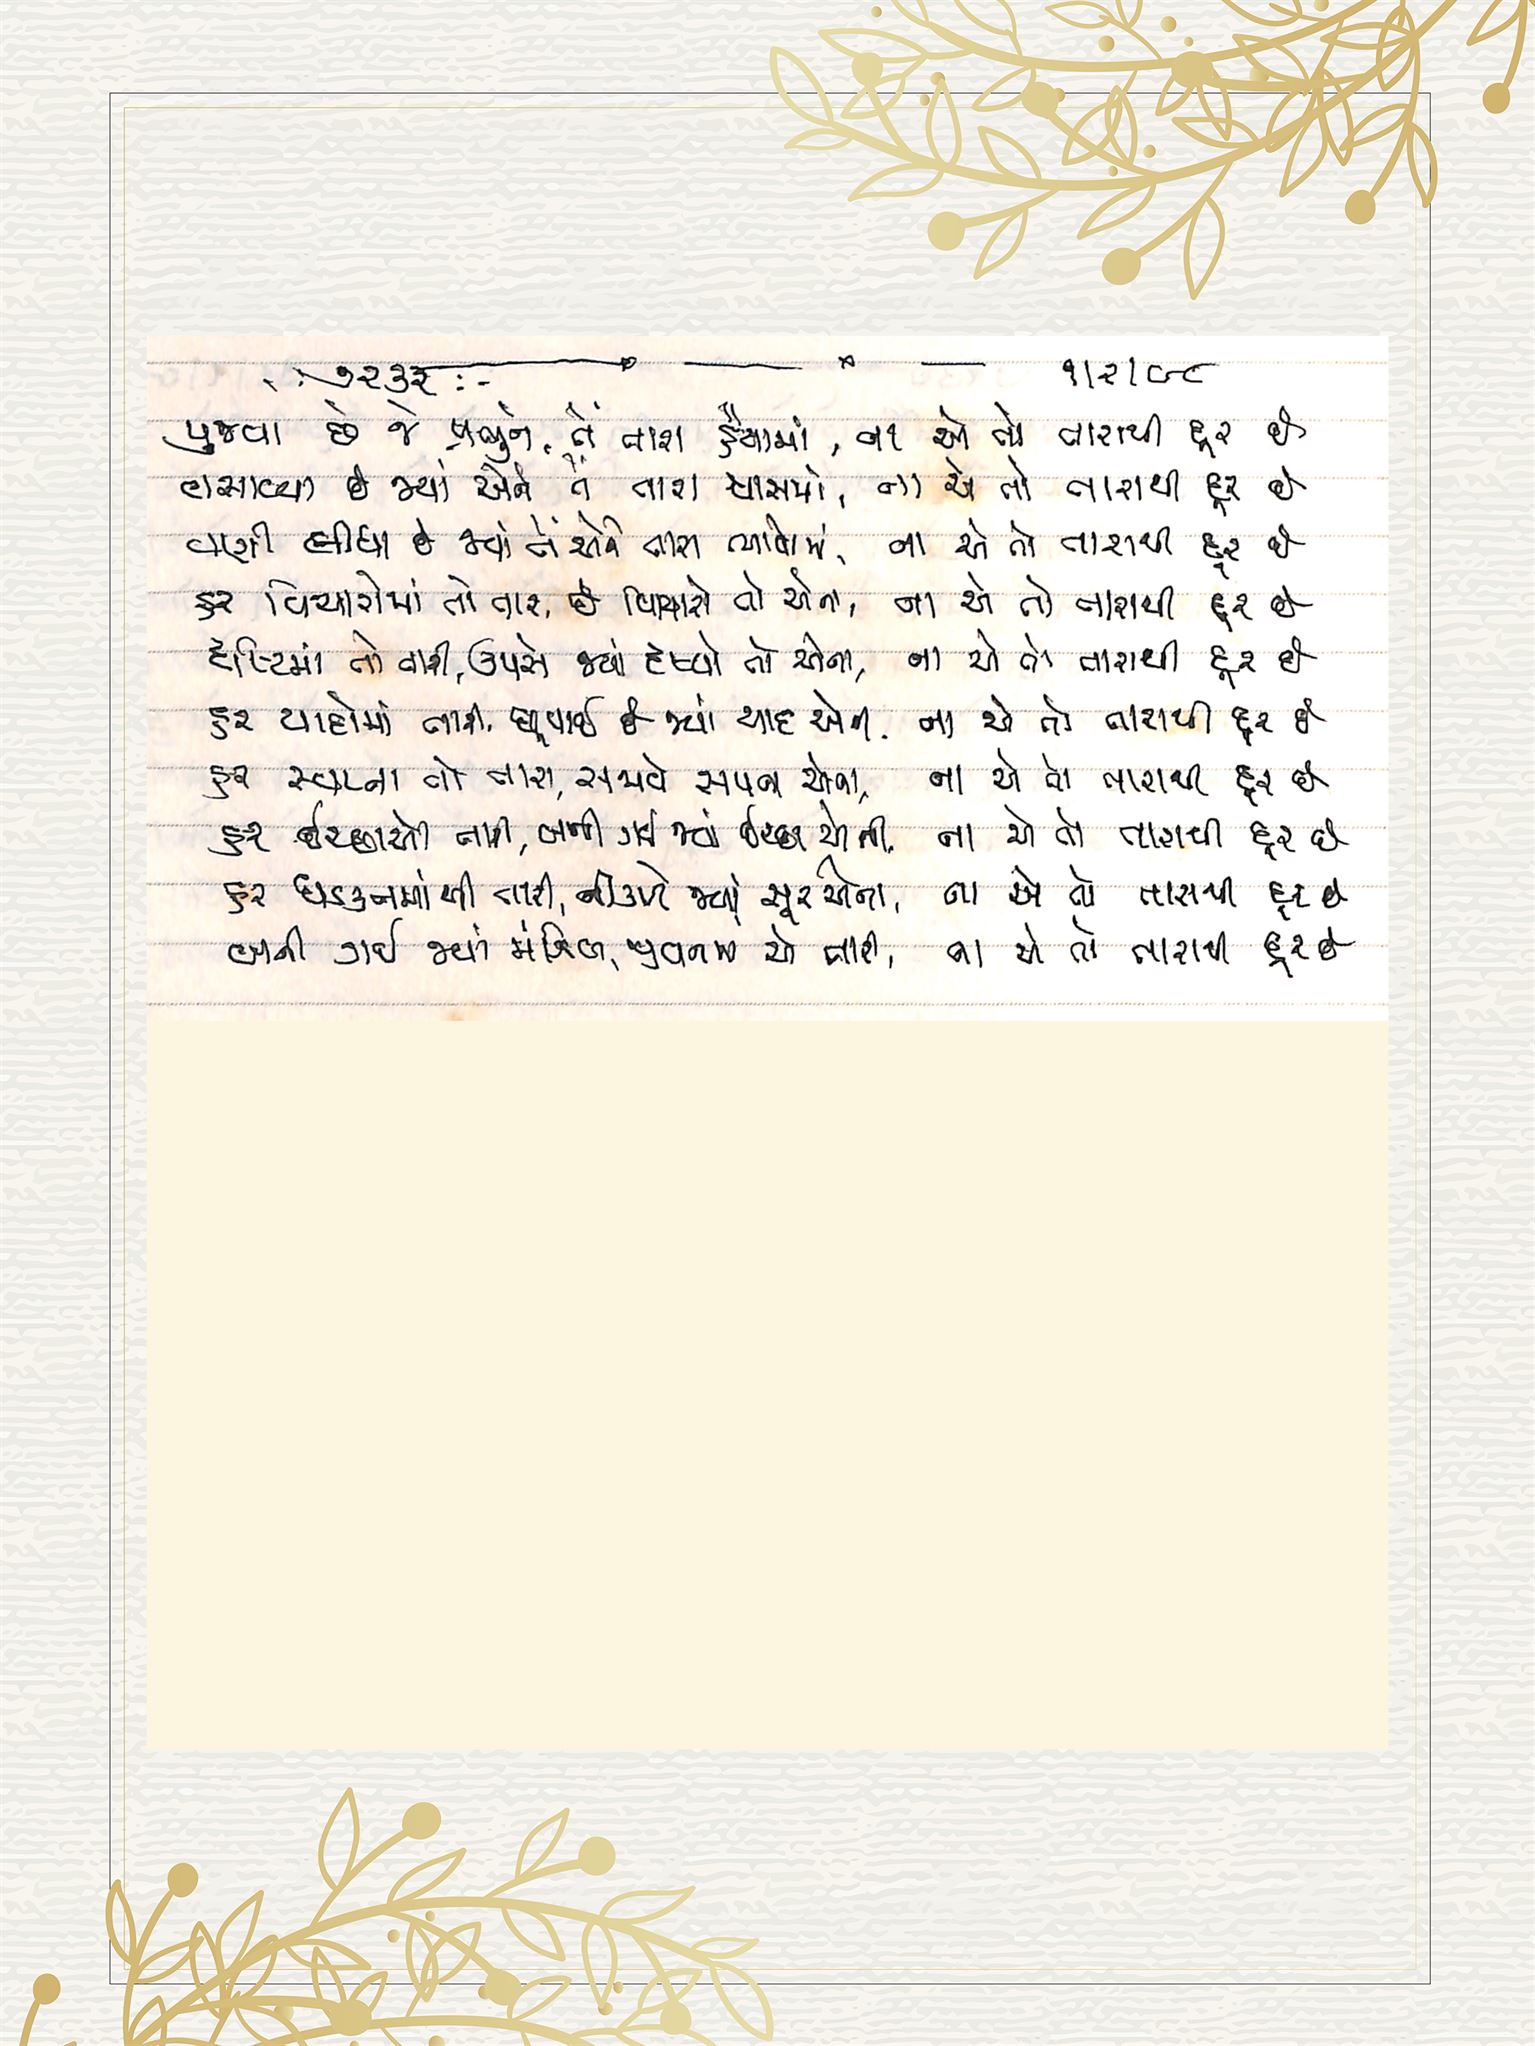 ૭૨૩૨ :- ૧/૨/૯૮
પુજવા છે જે પ્રભુને, તેં તારા હૈયામાં, ના એ તો તારાથી દૂર છે
વસાવ્યા છે જ્યાં એને તેં તારા શ્વાસમાં, ના એ તો તારાથી દૂર છે
વણી લીધા છે જ્યાં તેં એને તારા ભાવોમાં, ના એ તો તારાથી દૂર છે
હર વિચારોમાં તો તારા, છે વિચારો તો એના, ના એ તો તારાથી દૂર છે
દૃષ્ટિમાં તો તારી, ઉપસે જ્યાં દૃશ્યો તો એના, ના એ તો તારાથી દૂર છે
હર યાદોમાં તારી, છૂપાઈ છે જ્યાં યાદ એની, ના એ તો તારાથી દૂર છે
હર સ્વપ્ના તો તારા, સજાવે સપના એના, ના એ તો તારાથી દૂર છે
હર ઈચ્છાઓ તારી, બની ગઈ જ્યાં ઈચ્છા એની, ના એ તો તારાથી દૂર છે
હર ધડકનમાંથી તારી, નીકળે જ્યાં સૂર એના, ના એ તો તારાથી દૂર છે
બની ગઈ જ્યાં મંઝિલ, જીવનમાં એ તારી, ના એ તો તારાથી દૂર છે